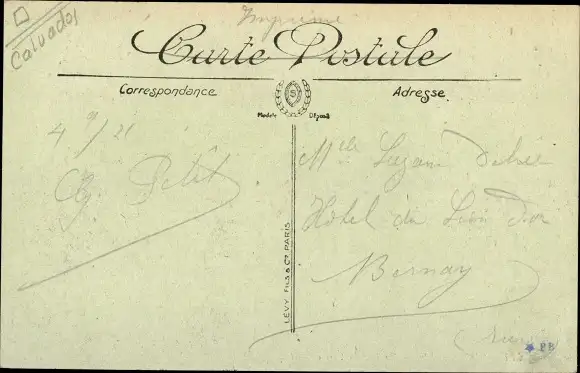 Imprimé
Calvados
Carte Postale
Correspondance
Adresse
Modèle Déposé
4 9/21
Petit
Mlle
Hôtel du Lion d'or
Bernay
LÉVY FILS & Cie PARIS
PB